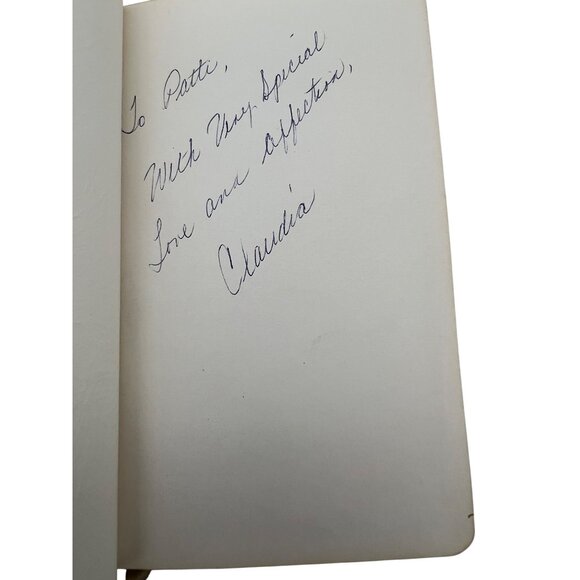 To Patti,
With Very Special
Love and affection,
Claudia